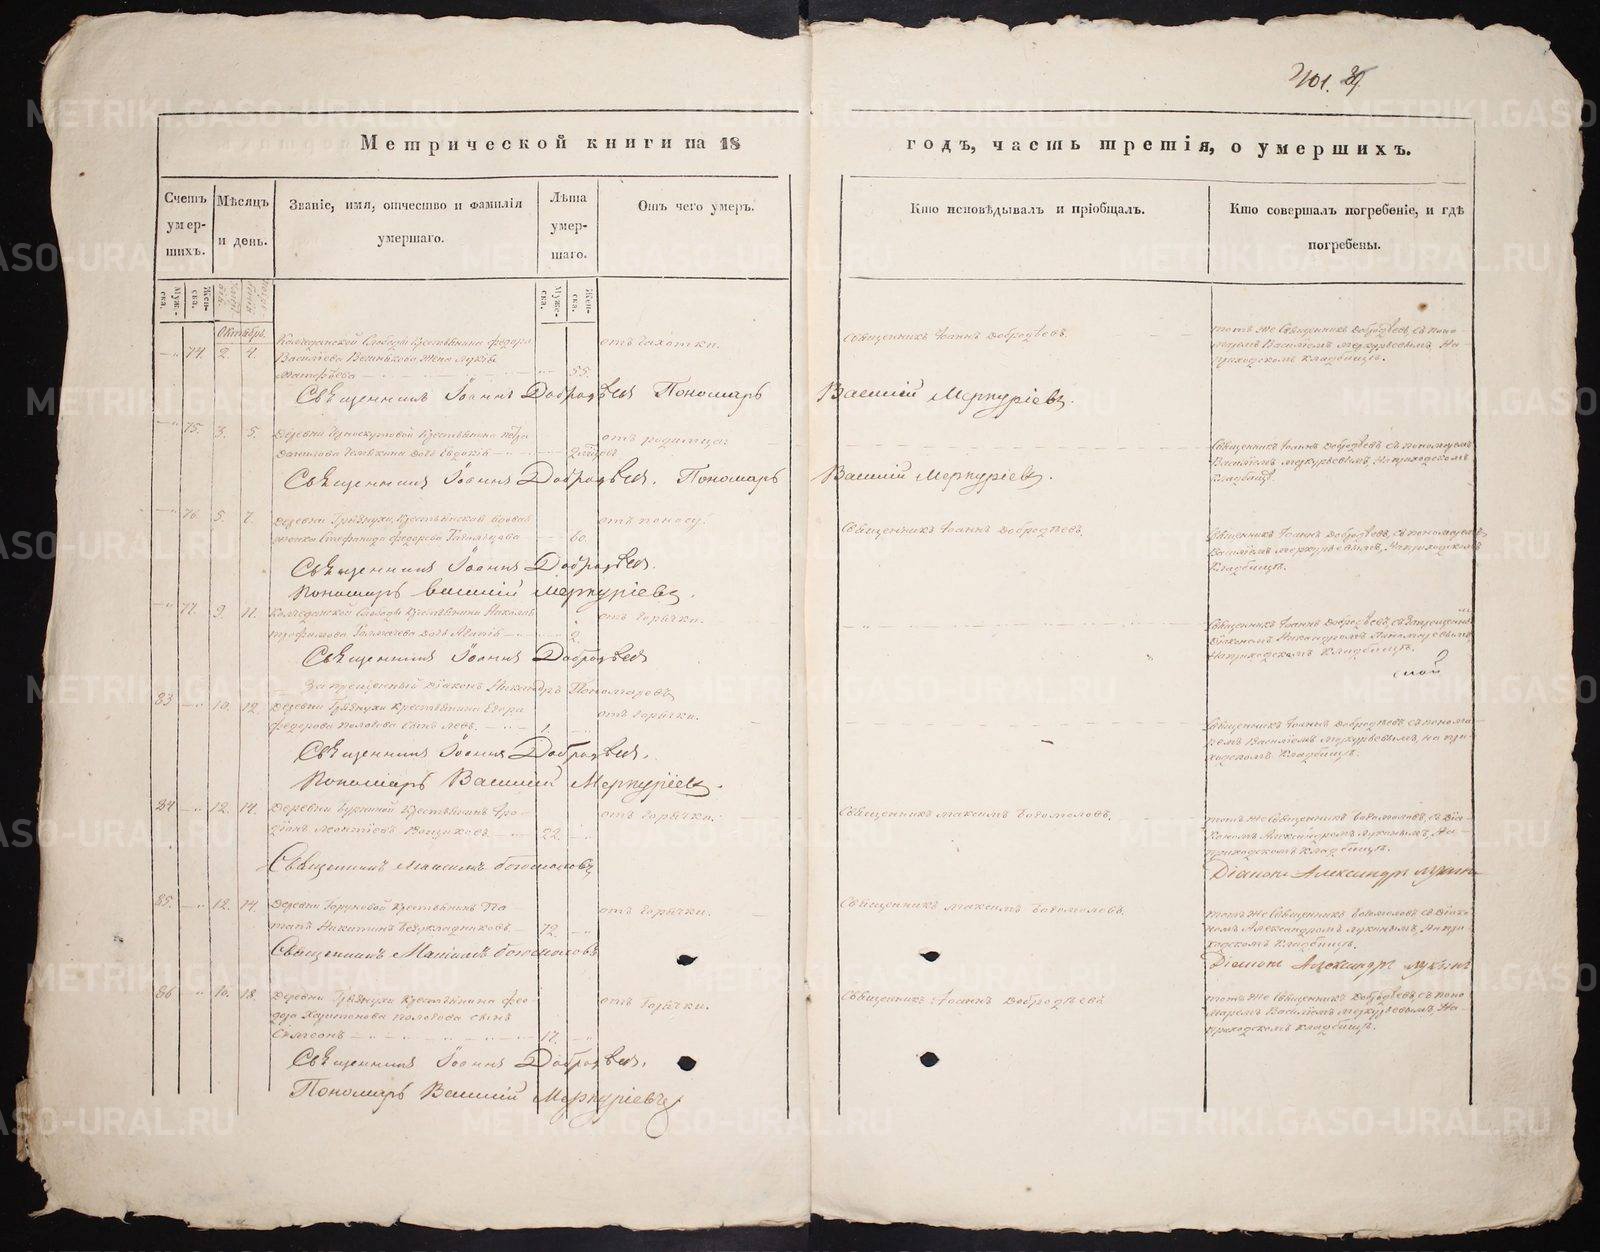 701. 89
Метрической книги на 18
годъ, часть третія, о умершихъ.
Счетъ умерших.
Мѣсяцъ и день.
Званіе, имя, отчество и фамилія умершаго.
Лѣта умершаго.
Отъ чего умеръ.
Кто исповѣдывалъ и пріобщалъ.
Кто совершалъ погребеніе, и гдѣ погребены.
Муж-ска. Жен-ска.
Октябрь.
74. 2. 4.
Крестьянина Федора
Василіева жена
Матфѣева 55.
Священникъ Іоаннъ Добродѣевъ
тотъ же Священникъ Добродѣевъ, съ поно-
маремъ Василіемъ Меркурьевымъ, На
приходскомъ кладбищѣ.
Священникъ Іоаннъ Добродѣевъ Пономарь Василій Меркуріевъ.
75. 3. 5.
Деревни Крестьянина
Данилова дочь Евдокія
отъ родимца
Священникъ Іоаннъ Добродѣевъ, съ пономаремъ
Василіемъ Меркурьевымъ, На приходскомъ
кладбищѣ.
Священникъ Іоаннъ Добродѣевъ. Пономарь Василій Меркуріевъ.
76. 5. 7.
Деревни Грязнухи, Крестьянская вдова
Стефанида Федорова 60.
отъ поносу.
Священникъ Іоаннъ Добродѣевъ.
Священникъ Іоаннъ Добродѣевъ, съ пономаремъ
Василіемъ Меркурьевымъ, На приходскомъ
кладбищѣ.
Священникъ Іоаннъ Добродѣевъ.
Пономарь Василій Меркуріевъ.
77. 9. 11.
Слободы Крестьянина Николая
Трофимова дочь 2.
отъ горячки.
Священникъ Іоаннъ Добродѣевъ, съ запрещеннымъ
Діакономъ Никандромъ Пономаревымъ,
На приходскомъ кладбищѣ.
Священникъ Іоаннъ Добродѣевъ
Запрещенный Діаконъ Никандръ Пономаревъ
83 10. 12.
Деревни Грязнухи Крестьянина Егора
Федорова Половова сынъ Левъ 1.
отъ горячки.
Священникъ Іоаннъ Добродѣевъ съ понома-
ремъ Василіемъ Меркурьевымъ, на при-
ходскомъ кладбищѣ.
Священникъ Іоаннъ Добродѣевъ.
Пономарь Василій Меркуріевъ.
84 12. 14.
Деревни Крестьянинъ
Леонтіевъ 22.
отъ горячки.
Священникъ Максимъ Богомоловъ.
тотъ же Священникъ Богомоловъ, съ Діа-
кономъ Александромъ Лукинымъ, На
приходскомъ кладбищѣ.
Священникъ Максимъ Богомоловъ
Діаконъ Александръ Лукинъ
85. 12. 14.
Деревни Крестьянинъ По-
тапъ Никитинъ 72.
отъ горячки.
Священникъ Максимъ Богомоловъ.
тотъ же Священникъ Богомоловъ съ Діако-
номъ Александромъ Лукинымъ, На при-
ходскомъ кладбищѣ.
Священникъ Максимъ Богомоловъ
Діаконъ Александръ Лукинъ
86 16. 18.
Деревни Грязнухи Крестьянина Фео-
дора Харитонова Половова сынъ
Сѵмеонъ 17.
отъ горячки.
Священникъ Іоаннъ Добродѣевъ
тотъ же Священникъ Добродѣевъ, съ поно-
маремъ Василіемъ Меркурьевымъ, На
приходскомъ кладбищѣ.
Священникъ Іоаннъ Добродѣевъ.
Пономарь Василій Меркуріевъ
METRIKI.GASO-URAL.RU